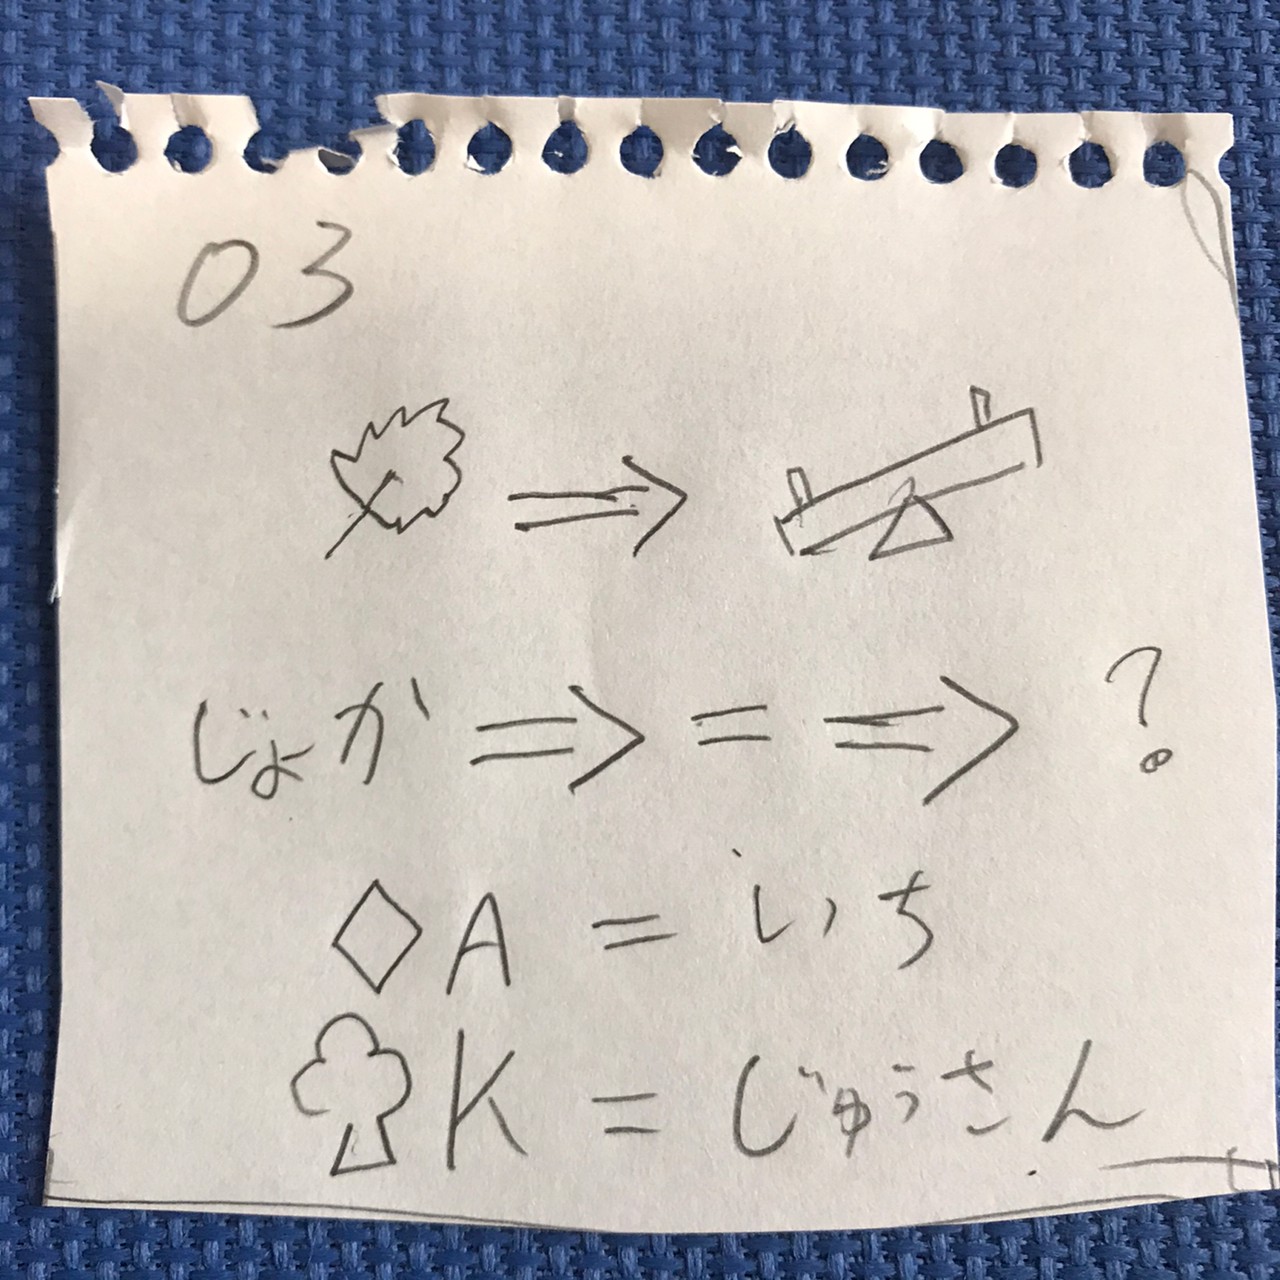 03
⇒
じょか ⇒ = ⇒ ?
◇A = いち
♧K = じゅうさん